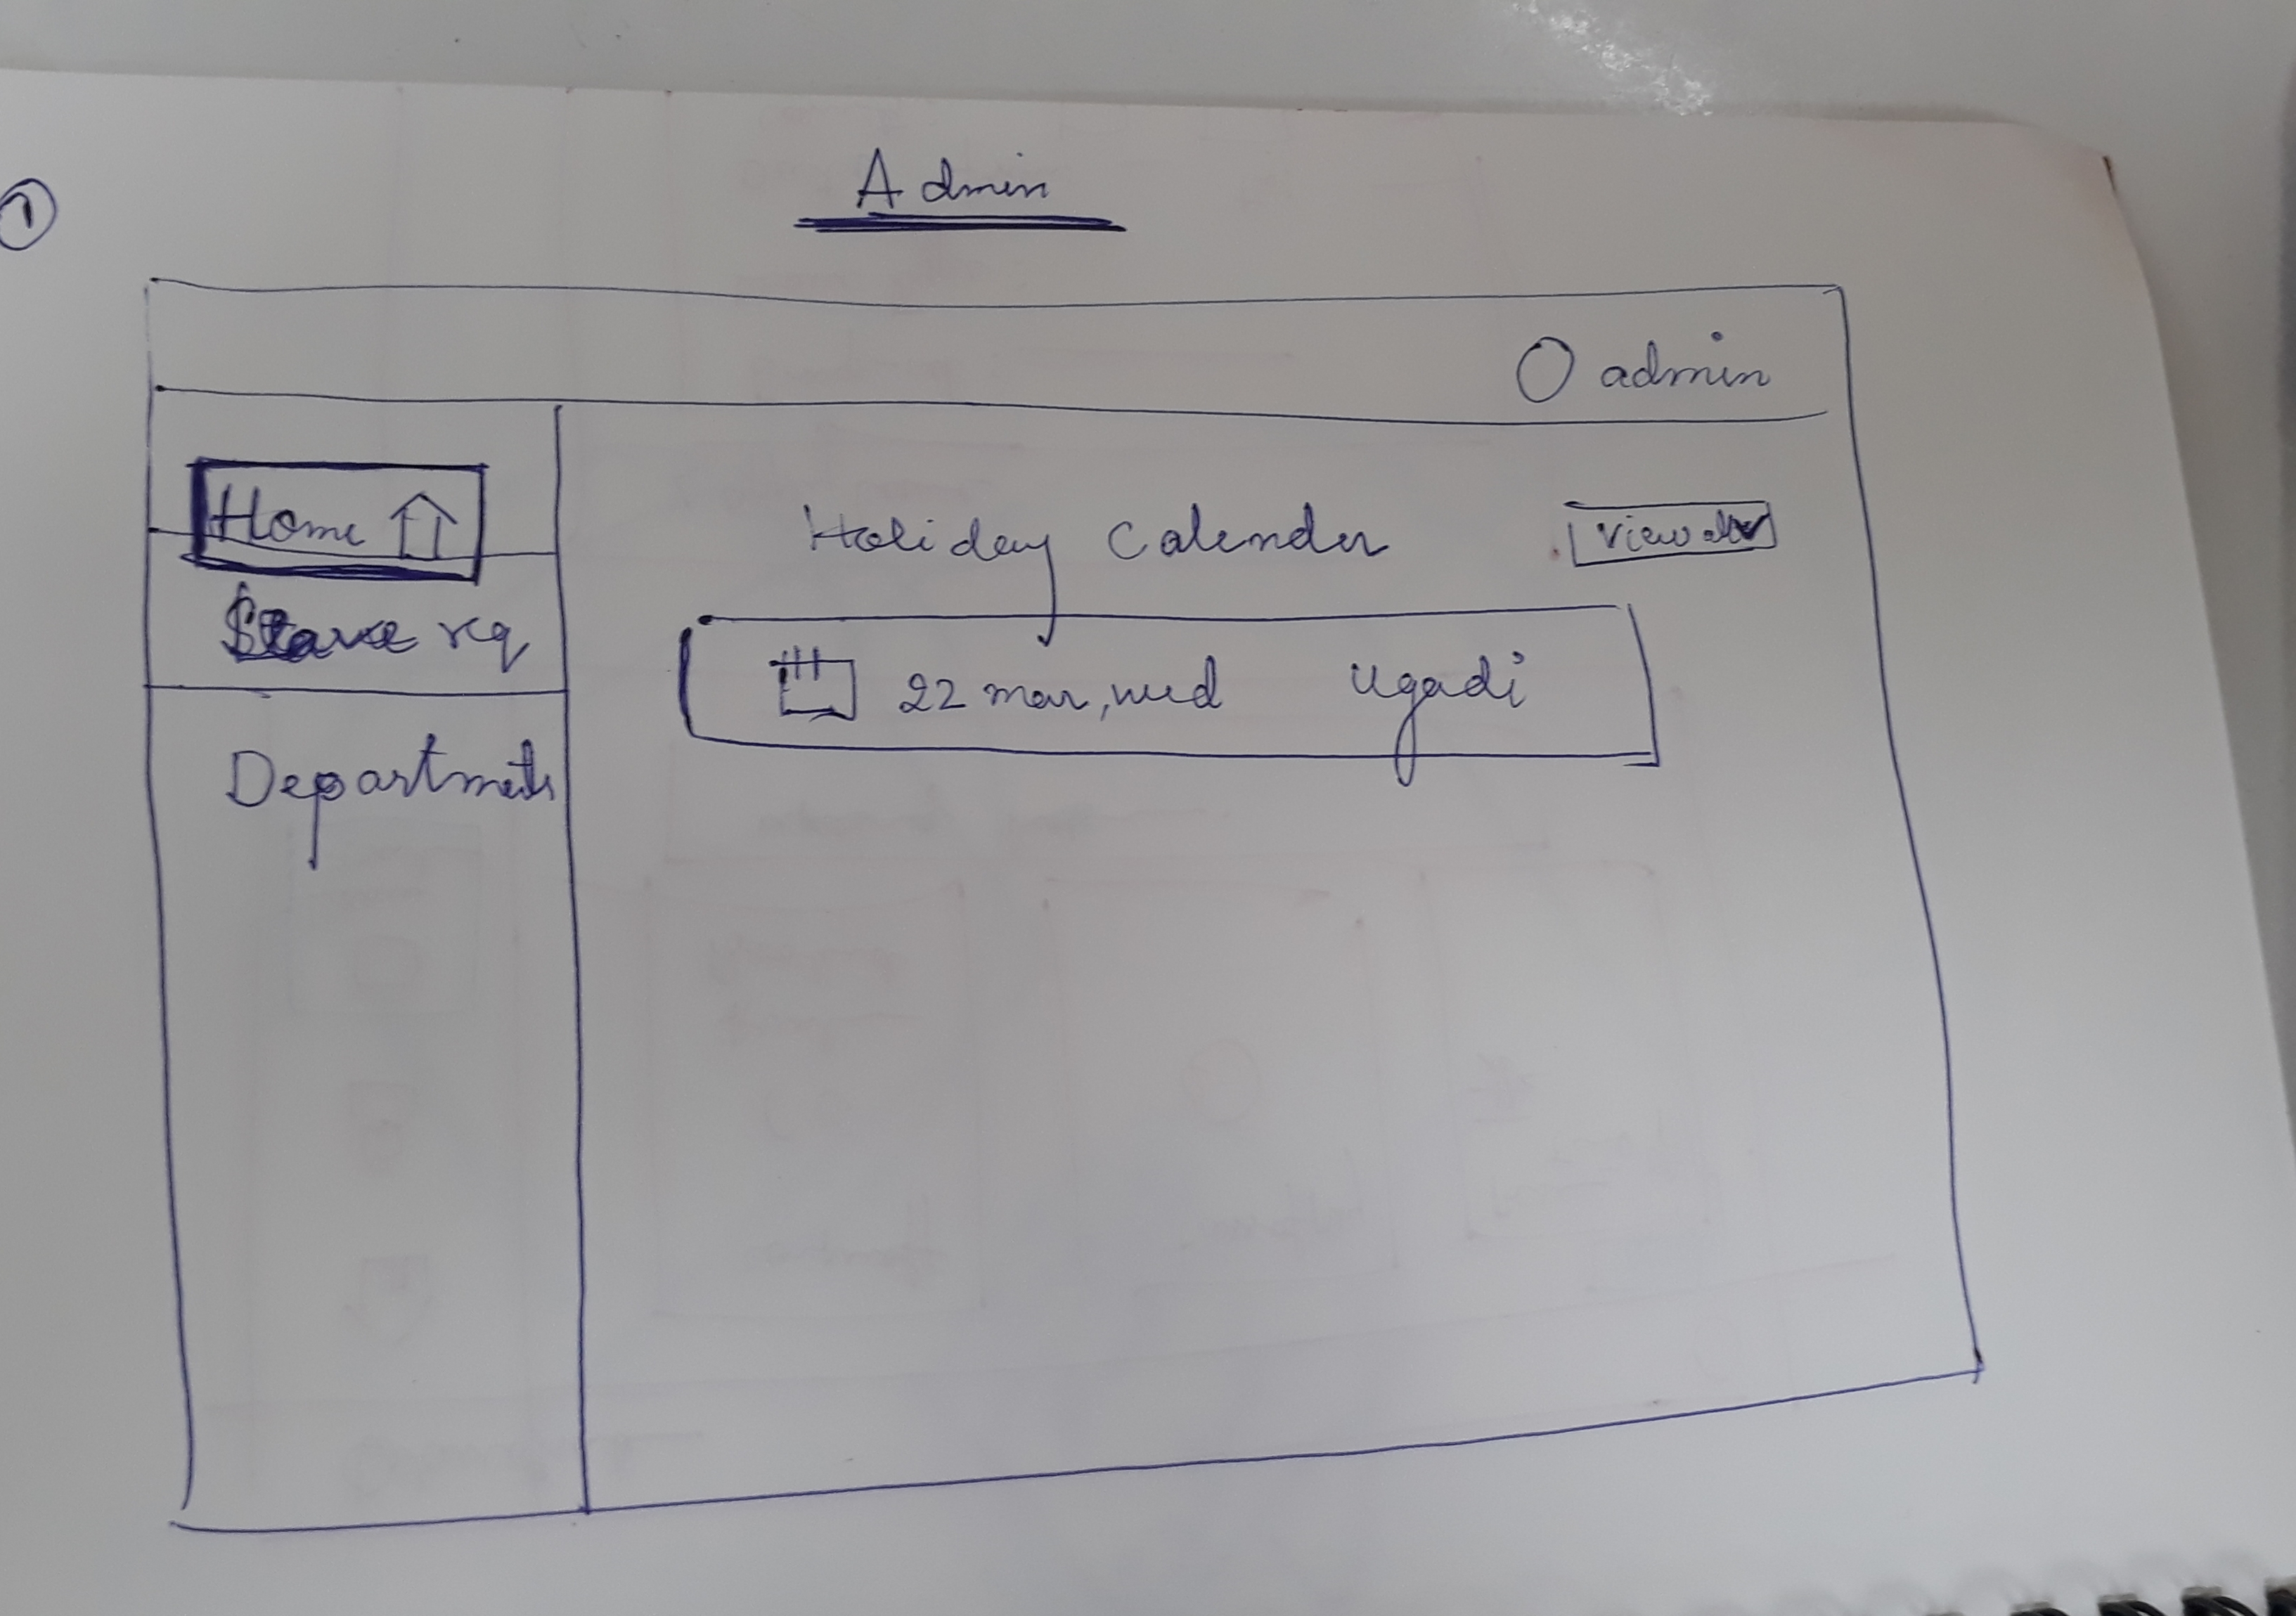 1
Admin
admin
Home
Leave req
Departments
Holiday Calender
View all
22 mar, wed Ugadi